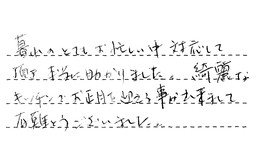 暮れのときお忙しい中対応して
頂き本当に助かりました。綺麗な
キッチンでお正月を迎える事が出来まして
有難とうございました。